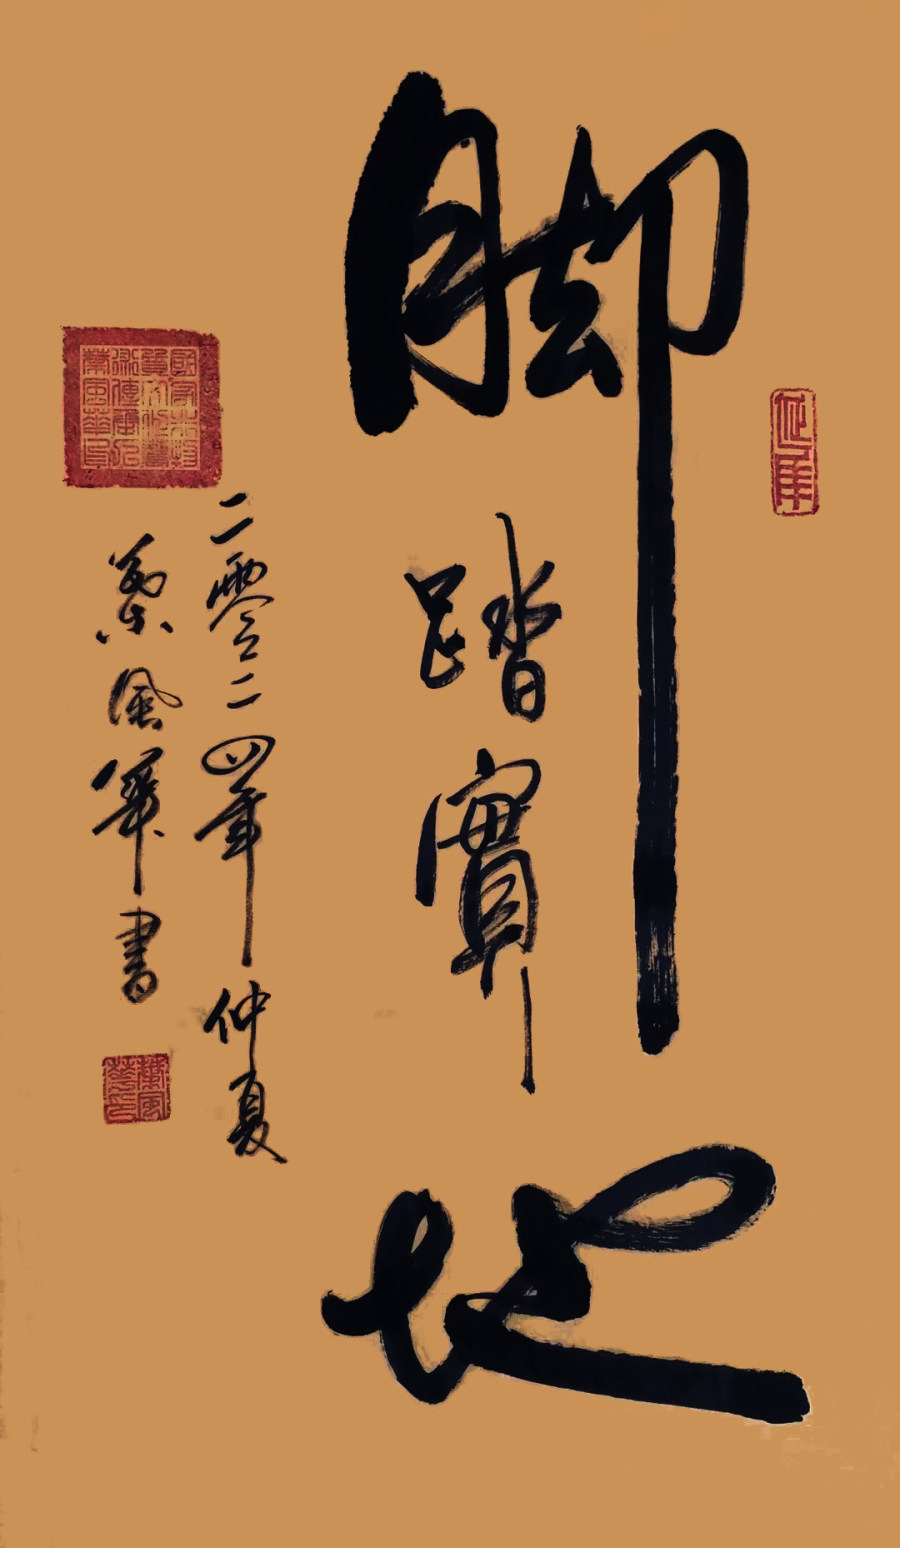 脚踏實地
二零二四年仲夏
葉風華書